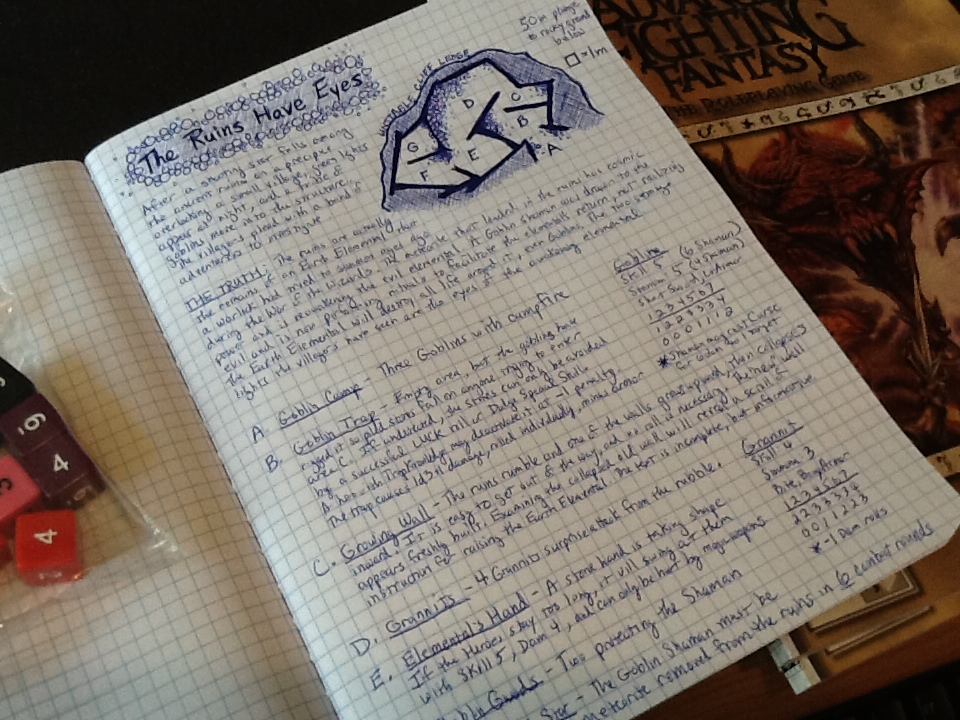 The Ruins Have Eyes
After a shooting star falls among
the ancient ruins on a precipice
overlooking a small village, green lights
appear at night, and
goblins move into the structure.
The villagers plead with a band of
adventurers to investigate
50m plunge
to rocky ground
below
□=1m
CLIFF LEDGE
A
B
C
D
E
F
G
THE TRUTH: The ruins are actually
the remains of an Earth Elemental that
a warlock had tried to summon ages ago
during the War of the Wizards. The meteorite that landed in the ruins has cosmic
power and is reawakening the evil elemental. A Goblin Shaman was drawn to the
evil and is now performing rituals to facilitate the elementals return, not realizing
the Earth Elemental will destroy all life around it, even Goblins. The two strange
lights the villagers have seen are the eyes of the awakening elemental.
A. Goblin Camp - Three Goblins with campfire
B. Goblin Trap - Empty area but the goblins have
rigged it so wall stones fall on anyone trying to enter
area C. If undetected, the stones can only be avoided
by a successful Luck hit or Dodge Special Skill.
A hero with Trap Knowledge may deactivate it at -1 penalty
The trap causes 1d3+1 damage, rolled individually, minus armor
C. Growing Wall - The ruins rumble and one of the walls grows upward, then collapses
inward. It is easy to get out of the way, and no roll is necessary. The new wall
appears freshly built. Examining the collapsed old wall will reveal a scroll of
instruction for raising the Earth Elemental. The text is incomplete, but informative
D. Grannits - 4 Grannits surprise attack from the rubble.
E. Elemental's Hand - A stone hand is taking shape
If the Heroes stay too long, it will swing at them
with SKILL 5, Dam 4, and can only be hurt by magic weapons
Goblin Guards - Two protecting the Shaman
Star - The Goblin Shaman must be
meteorite removed from the ruins in 6 combat rounds
Goblins
Skill 5 (6 Shaman)
Stamina 5 (7 Shaman)
Short Sword
1 2 3 4 5 6 7
1 2 2 3 3 3 4
0 0 1 1 1 2
*Shaman may cast Curse
Grannit
Skill - 4
Stamina 3
1 2 3 4 5 6 7
2 2 3 3 3 4
0 0 1 1 2 2 3
*-1 Dam rolls
ADVANCED
FIGHTING
FANTASY
THE ROLEPLAYING GAME
3
9
4
3
4